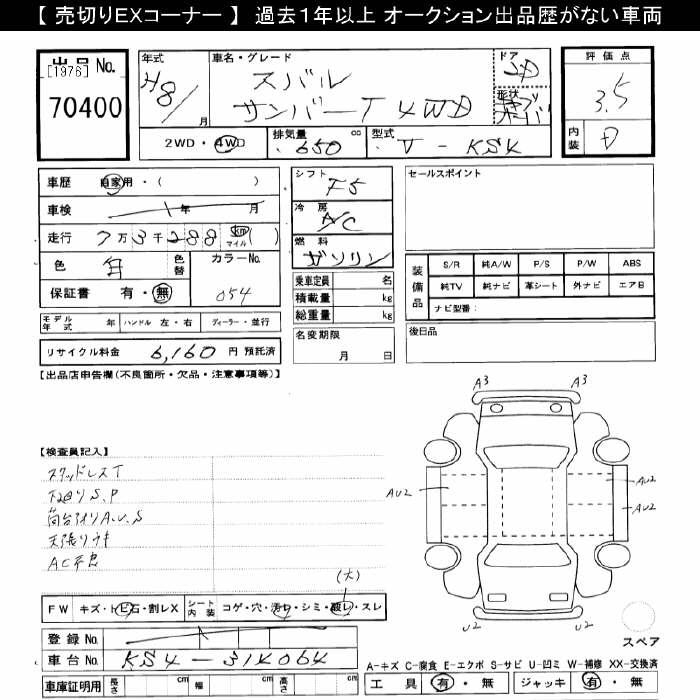 【 売切りEXコーナー 】 過去1年以上 オークション出品歴がない車両
出品 No.
[1976]
70400
年式
H8/
月
車名・グレード
スバル
サンバーT 4WD
ドア
形状
評価点
3.5
2WD・4WD
排気量
650
cc
型式
V - KS4
内装
D
車歴
自家用・( )
車検
年 月
走行
7万3千288
km
マイル
( )
色
白
色替
カラーNo.
054
保証書
有・無
シフト
F5
冷房
A/C
燃料
ガソリン
乗車定員
名
積載量
kg
総重量
kg
セールスポイント
装備品
S/R 純A/W P/S P/W ABS
純TV 純ナビ 革シート 外ナビ エアB
ナビ型番：
モデル年式
年
ハンドル 左・右
ディーラー・並行
リサイクル料金
6,160
円 預託済
名変期限
月 日
後日品
【出品店申告欄(不良箇所・欠品・注意事項等)】
【検査員記入】
スタッドレスT
下回りS.P
荷台アオリA.U.S
天張りウキ
AC不良
A3 A3
AU2
AU2
AU2
U2 U2
(大)
FW
キズ・トビ石・割レX
シート内装
コゲ・穴・汚レ・シミ・破レ・スレ
登録 No.
車台 No.
KS4-314064
スペア
A-キズ C-腐食 E-エクボ S-サビ U-凹ミ W-補修 XX-交換済
車庫証明用
長さ
cm
幅
cm
高さ
cm
工具
有・無
ジャッキ
有・無